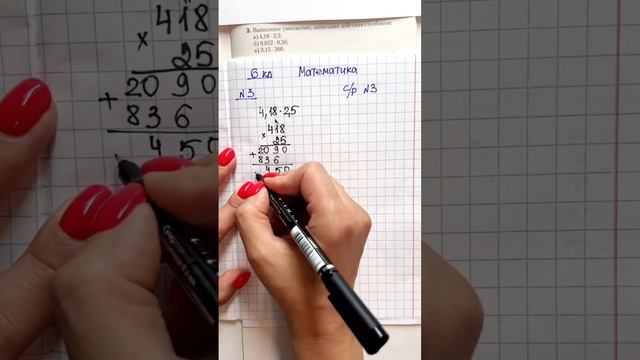 3. Выполните умножение, записывая действия столбиком:
а) 4,18 · 2,5;
б) 0,052 · 0,36;
в) 3,15 · 260.
6 кл Математика
№3 С/р №3
4,18 · 2,5
418
×
25
2090
+
836
450
418
×
25
2090
+
836
450